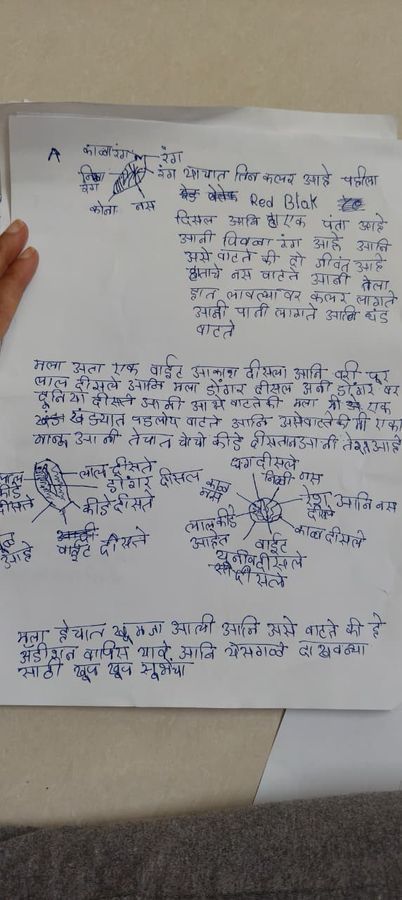 A काळा रंग रंग
निळा रंग याच्यात तिन कलर आहे पहीला
रंग Red Blak
कोना नस दिसल आनि हा एक पंता आहे
आनी पिवळा रंग आहे आनि
असे वाटते की हो जीवंत आहे
ह्याचे नस वाटते आनी तेला
हात लावल्यावर कलर लागते
आनी पाती लागते आनि थंड
वाटते
मला अता एक वाईट आकाश दीसला आनि वरी
लाल दीसले आनि मला डोंगर दीसल अनी डोंगर वर
दीसते आनी आसे वाटते की मला मी एक
खंड्यात पडलोय वाटते आनि असे वाटते की मी एका
आनी तेचात कीडे दीसतात आनी आहे
लाल कीडे दीसते
लाल दीसते
डोंगर दीसल
कीडे दीसते
वाईट दीसते
आहे
दीसले
काळा नस
नस
रेश आनि नस दीसले
काळा दीसले
लाल कीडे आहेत
वाईट
दीसले
दीसले
मला हेचात खुप मजा आली आनि असे वाटते की हे
वापिस यावे आनि येसगळे दाखवल्या
साठी खुप खुप सुभेचा